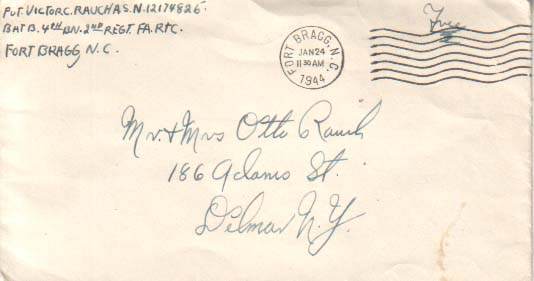 PVT. VICTOR C. RAUCH A.S.N. 12174826.
BAT B. 4TH BN. 2ND REGT F.A.R.T.C.
FORT BRAGG N.C.
FORT BRAGG, N.C.
JAN 24
11 30 AM
1944
Free
Mr. & Mrs Otto Rauch
186 Adams St.
Delmar N.Y.